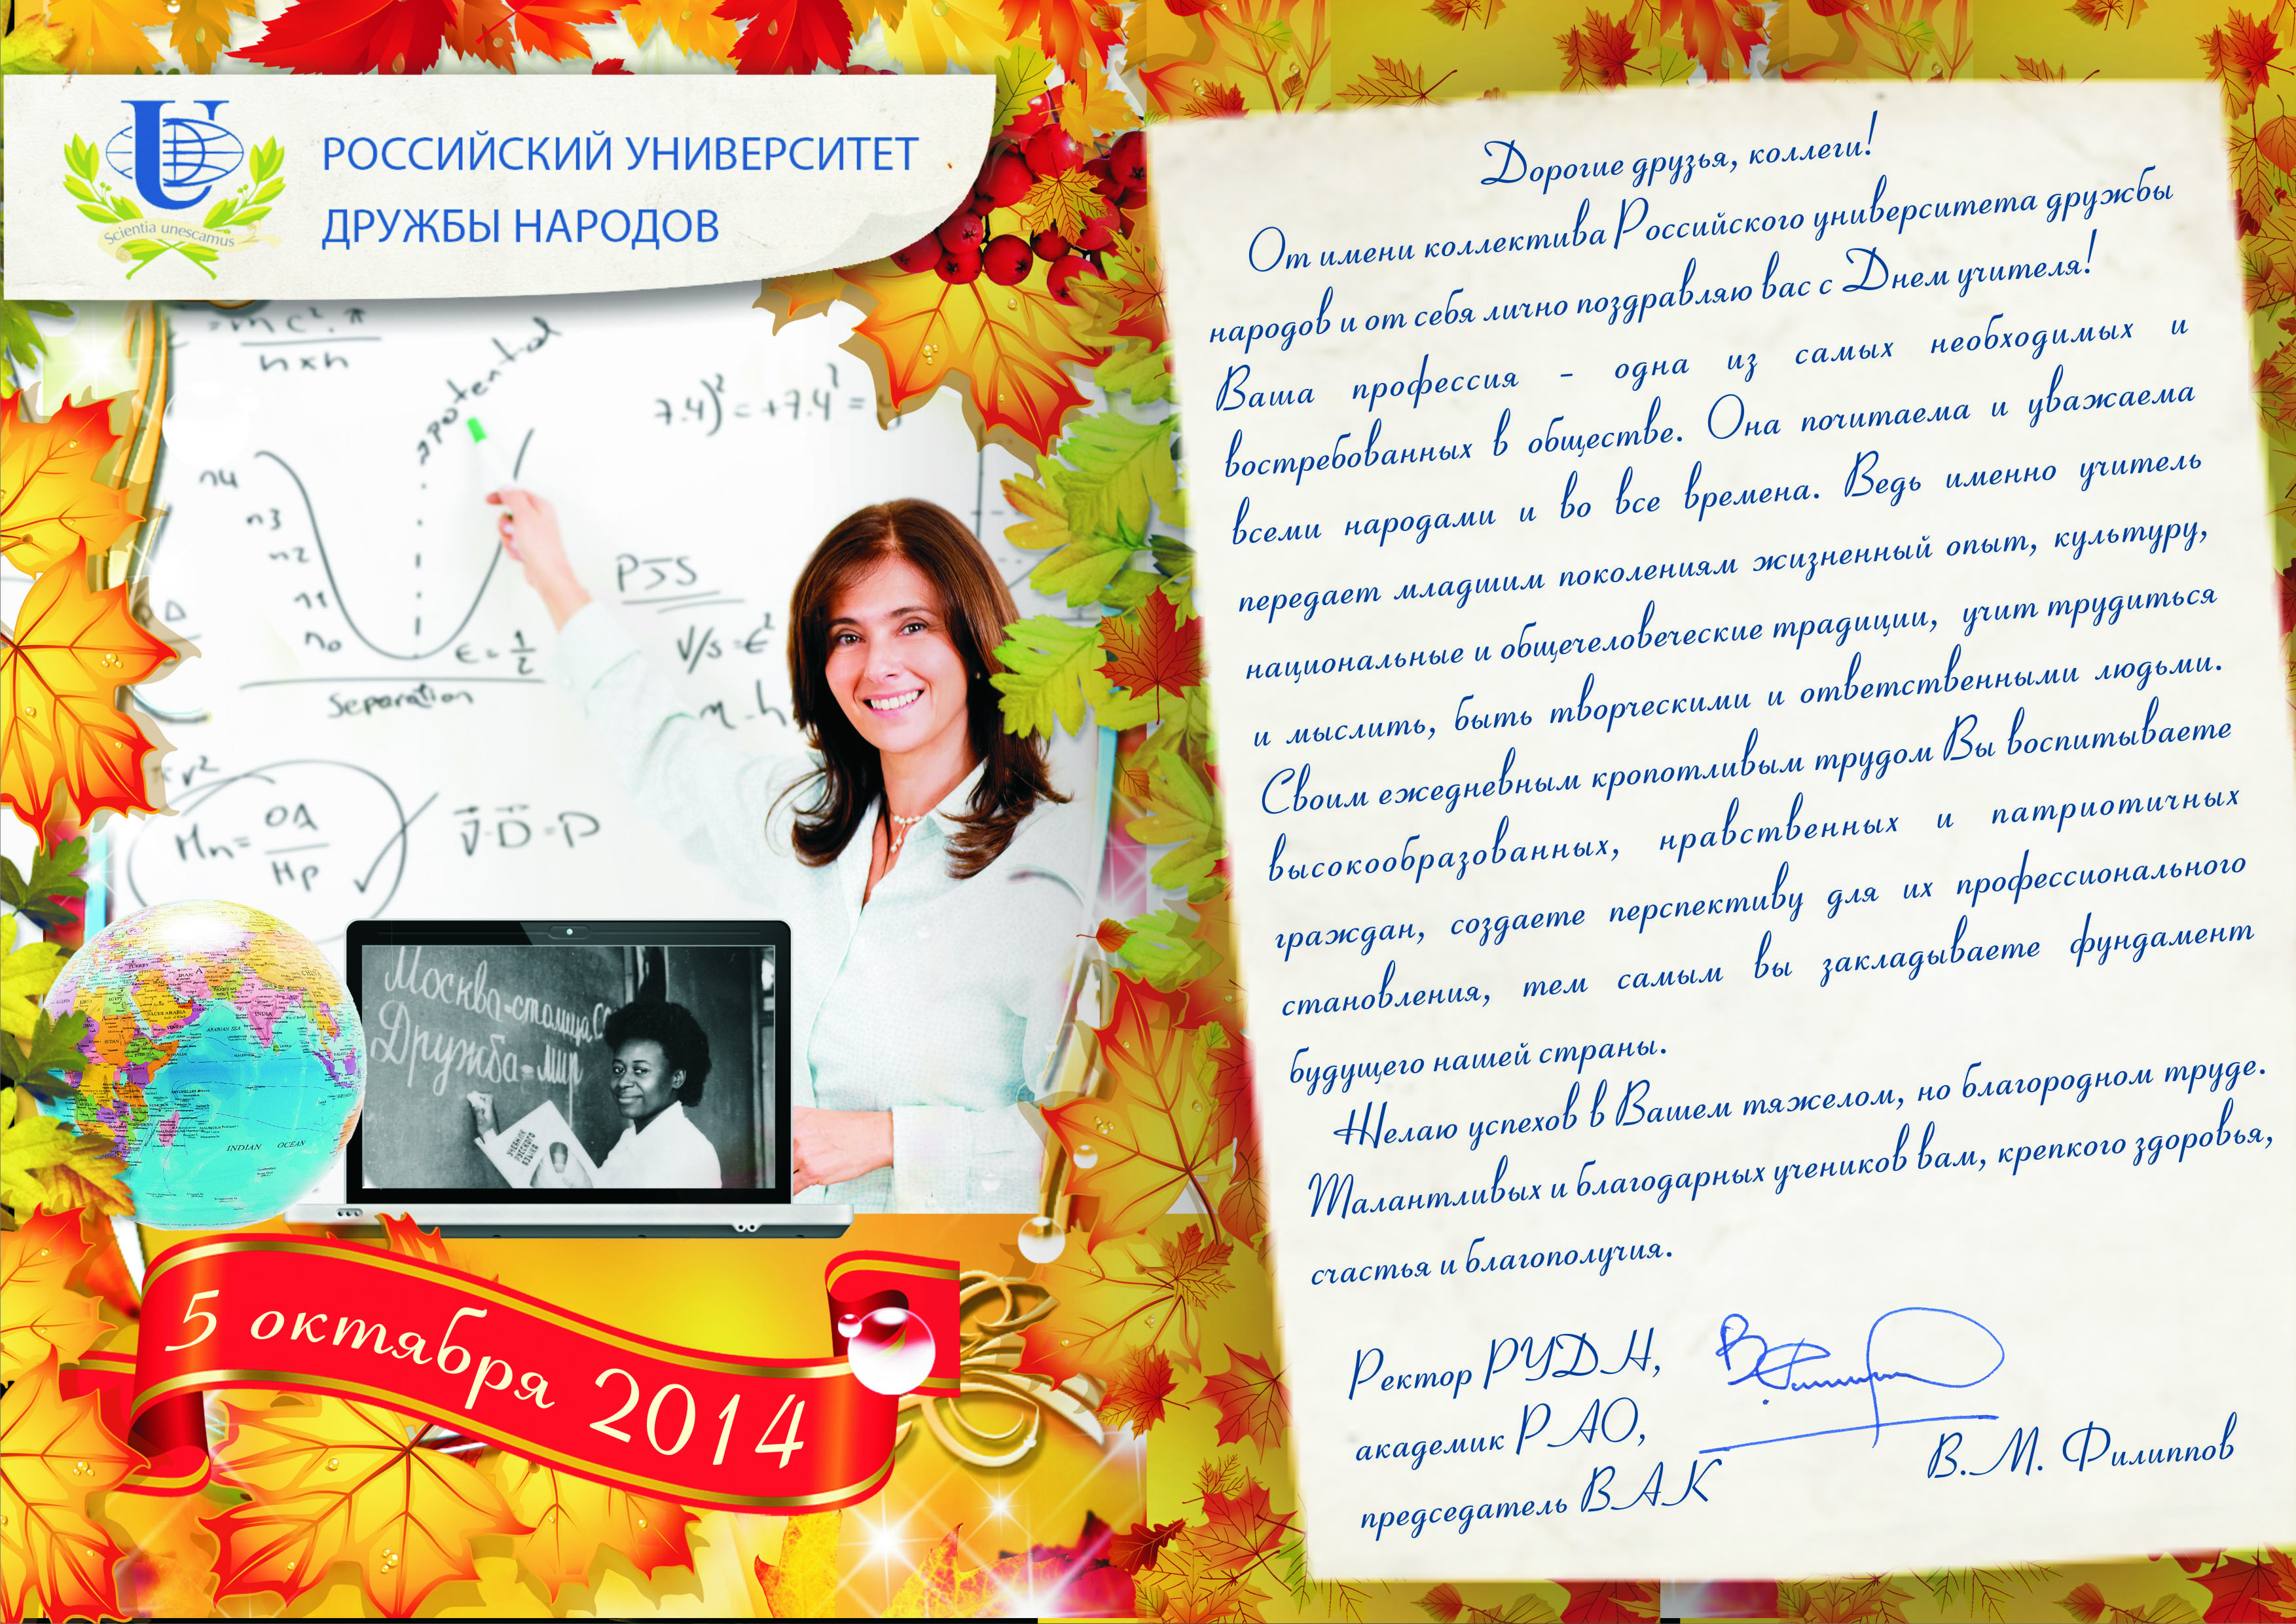 РОССИЙСКИЙ УНИВЕРСИТЕТ
ДРУЖБЫ НАРОДОВ
Scientia unescamus
= mc². π
h x h
potential
7.4)² = +7.4² =
n4
n3
n2
n1
n0
ϵ = 1/2
Separation
PJS
V/s = ϵ²
πr²
Mn = OA
Hp
V · D = D
Москва-столица СС
Дружба-мир
УЧЕБНИК
РУССКОГО
ЯЗЫКА
TURKEY
IRAN
SAUDI ARABIA
INDIA
ARABIAN SEA
INDIAN OCEAN
5 октября 2014
Дорогие друзья, коллеги!
От имени коллектива Российского университета дружбы
народов и от себя лично поздравляю вас с Днем учителя!
Ваша профессия - одна из самых необходимых и
востребованных в обществе. Она почитаема и уважаема
всеми народами и во все времена. Ведь именно учитель
передает младшим поколениям жизненный опыт, культуру,
национальные и общечеловеческие традиции, учит трудиться
и мыслить, быть творческими и ответственными людьми.
Своим ежедневным кропотливым трудом Вы воспитываете
высокообразованных, нравственных и патриотичных
граждан, создаете перспективу для их профессионального
становления, тем самым вы закладываете фундамент
будущего нашей страны.
Желаю успехов в Вашем тяжелом, но благородном труде.
Талантливых и благодарных учеников вам, крепкого здоровья,
счастья и благополучия.
Ректор РУДН,
академик РАО,
председатель ВАК
В.М. Филиппов